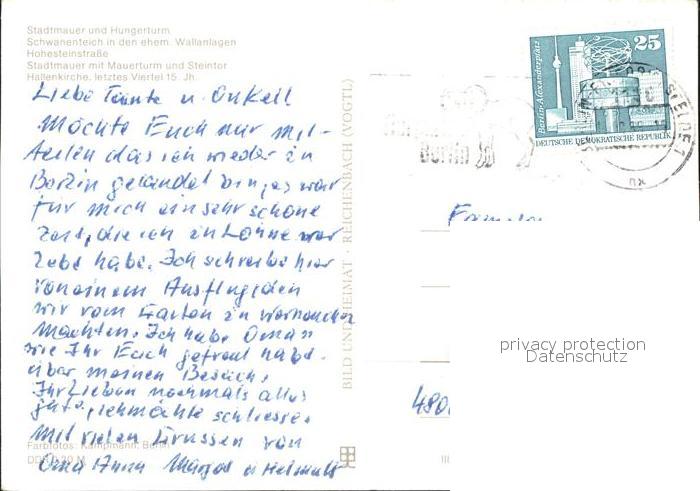 Stadtmauer und Hungerturm
Schwanenteich in den ehem. Wallanlagen
Hohesteinstraße
Stadtmauer mit Mauerturm und Steintor
Hallenkirche, letztes Viertel 15. Jh.
Liebe Tante u. Onkell
Möchte Euch nur mit-
teilen das ich wieder in
Berlin gelandet bin, es war
für mich ein sehr schöne
Zeit, die ich in Löhne ver
lebt habe. Ich schreibe hier
von einem Ausflug, den
wir vom Garten in
machten. Ich habe Oma
wie Ihr Euch gefreut habt
über meinen Besuch,
Ihr Lieben nochmals alles
gute, ich möchte schliessen
Mit vielen Grüssen von
Oma Anna Margot u Helmutt
Farbfotos: Kampmann, Berlin
DDR 0,20 M
BILD UND HEIMAT · REICHENBACH (VOGTL)
Berlin-Alexanderplatz
25
DEUTSCHE DEMOKRATISCHE REPUBLIK
Berlin
480
privacy protection
Datenschutz